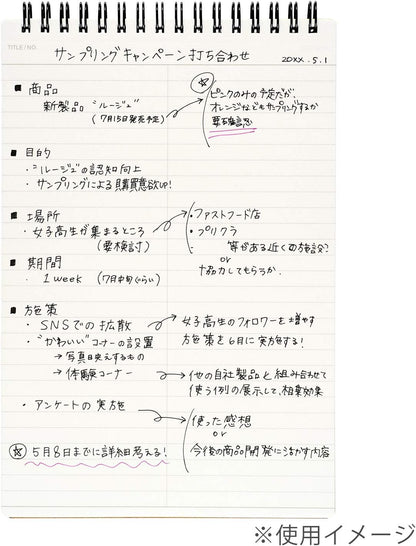 TITLE/NO.
サンプリングキャンペーン打ち合わせ
20XX.5.1
■ 商品
新製品 "ルージュ"
(7月15日発売予定)
☆
ピンクのみの予定だが、
オレンジなどもサンプリングするか
要確認
■ 目的
・"ルージュ"の認知向上
・サンプリングによる購買意欲UP!
■ 場所
・女子高生が集まるところ
(要検討)
・ファストフード店
・プリクラ
等がある近くの施設?
or
協力してもらうか.
■ 期間
・1week (7月中旬ぐらい)
■ 方策
・SNSでの拡散
女子高生のフォロワーを増やす
方策を6月に実施する!
・"かわいい"コーナーの設置
→写真映えするもの
→体験コーナー
他の自社製品と組み合わせて
使う例の展示して、相乗効果
・アンケートの実施
使った感想
or
今後の商品開発に活かす内容
☆ 5月8日までに詳細考える!
※使用イメージ